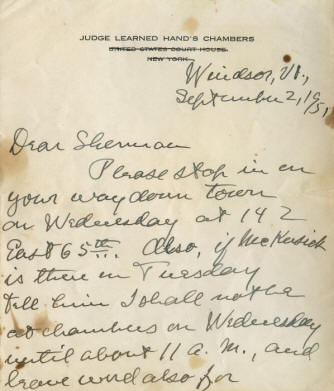 JUDGE LEARNED HAND'S CHAMBERS
UNITED STATES COURT HOUSE
NEW YORK
Windsor, Vt.,
September 2, 1951
Dear Sherman
Please stop in on
your way down town
on Wednesday at 142
East 65th. Also, if McKusick
is there on Tuesday
tell him I shall not be
at chambers on Wednesday
until about 11 a.m., and
leave word also for